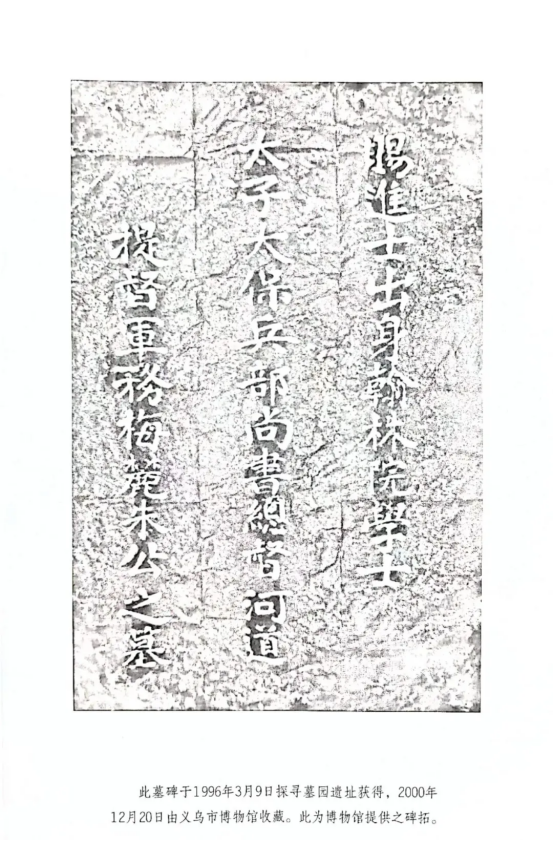 賜進士出身翰林院學士
太子太保兵部尚書總督河道
提督軍務梅麓朱公之墓
此墓碑于1996年3月9日探寻墓园遗址获得，2000年
12月20日由义乌市博物馆收藏。此为博物馆提供之碑拓。